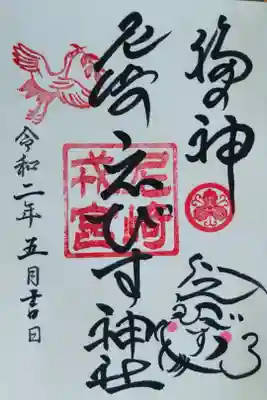 福の神
尼崎えびす神社
尼崎戎宮
えびす
令和二年五月吉日